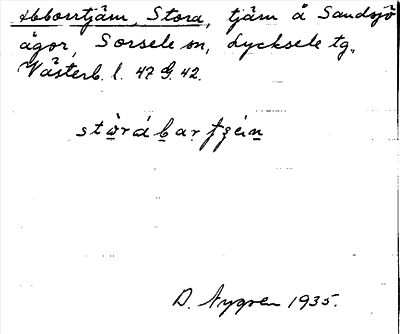 Abborrtjärn, Stora, tjärn å Sandsjö
ägor, Sorsele sn, Lycksele tg,
Västerb. l. 47 G. 42.
D. Nygren 1935.